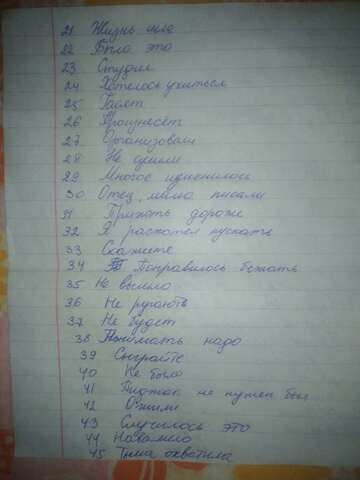 21 Жизнь шла
22 Было это
23 Студил
24 Хотелось учиться
25 Гаснет
26 Произнесёт
27 Организовали
28 Не
29 Многое изменилось
30 Отец, мама писали
31 дорожe
32 Я расхотел пускать
33 Скажете
34 Понравилось бежать
35 Не вышло
36 Не ругают
37 Не будет
38 Понимать надо
39 Сыграйте
40 Не было
41 Пиджак не нужен был
42 Ожили
43 Случилось это
44 Навалило
45 Тьма охватила